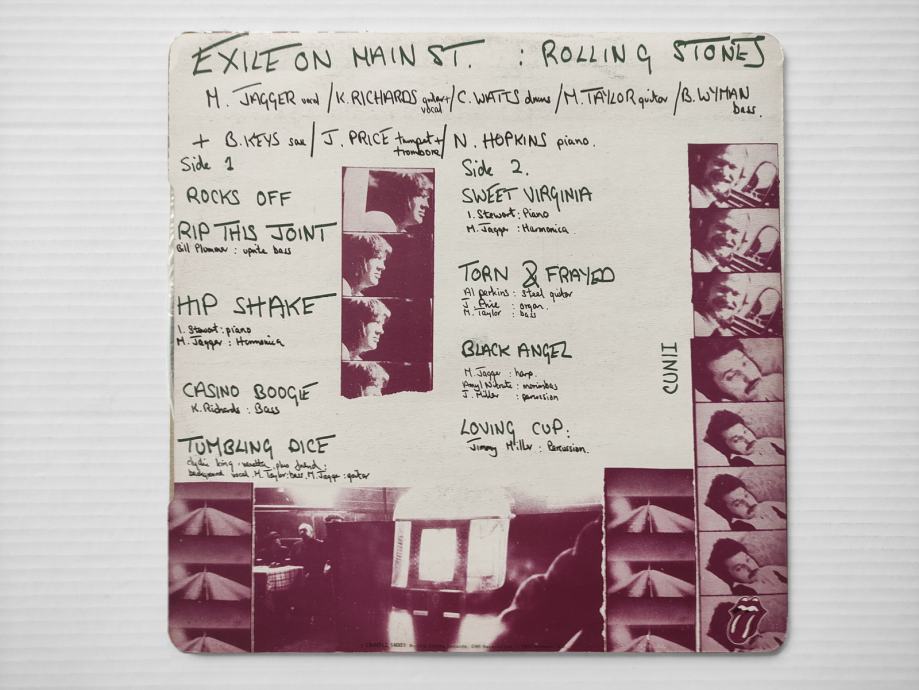 EXILE ON MAIN ST. : ROLLING STONES
M. JAGGER vocal / K. RICHARDS guitar + vocal / C. WATTS drums / M. TAYLOR guitar / B. WYMAN bass.
+ B. KEYS sax / J. PRICE trumpet + trombone / N. HOPKINS piano.
Side 1
ROCKS OFF
RIP THIS JOINT
Bill Plummer : uprite bass
HIP SHAKE
I. Stewart : piano
M. Jagger : Harmonica
CASINO BOOGIE
K. Richards : Bass
TUMBLING DICE
clydie king : vanetta plus friend :
background vocal . M. Taylor : bass . M. Jagger : guitar
Side 2.
SWEET VIRGINIA
I. Stewart : Piano
M. Jagger : Harmonica
TORN & FRAYED
Al perkins : steel guitar
J. Price : organ.
M. Taylor : bass
BLACK ANGEL
M. Jagger : harp.
Amyl Nitrate : marimbas
J. Miller : percussion
LOVING CUP :
Jimmy Miller : Percussion.